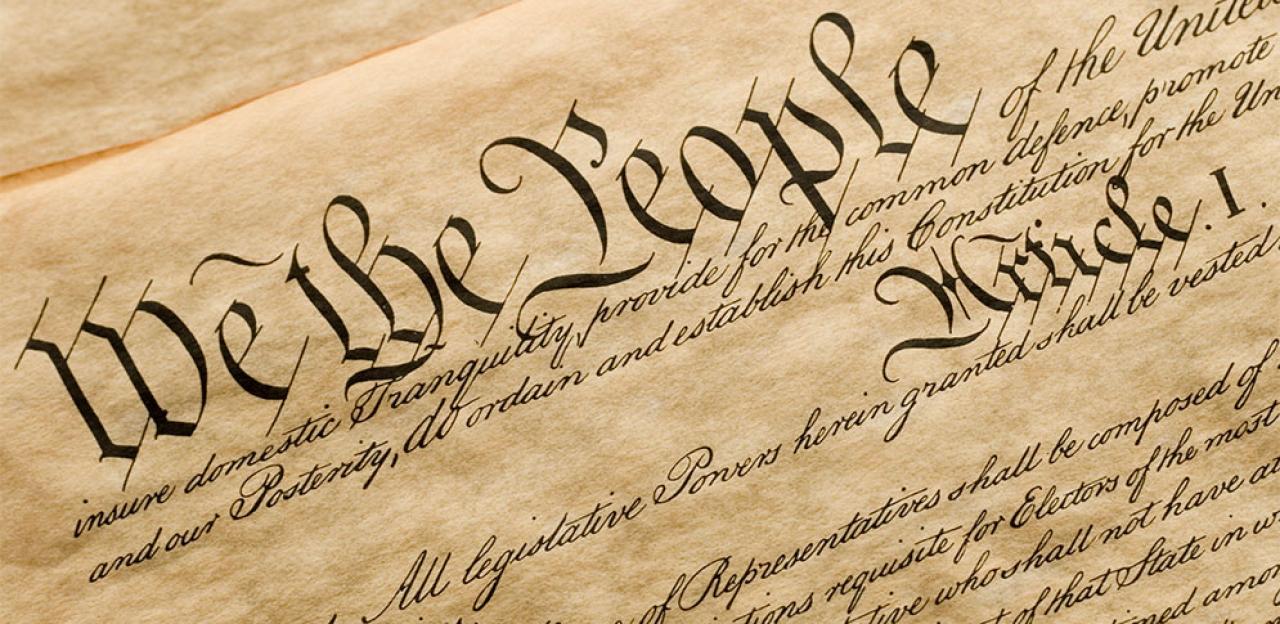 We the People of the United
insure domestic Tranquility, provide for the common defence, promote
and our Posterity, do ordain and establish this Constitution for the Un
Article. I.
All legislative Powers herein granted shall be vested
of Representatives shall be composed of
tions requisite for Electors of the most
tive who shall not have at
t of that State in w
ioned amon